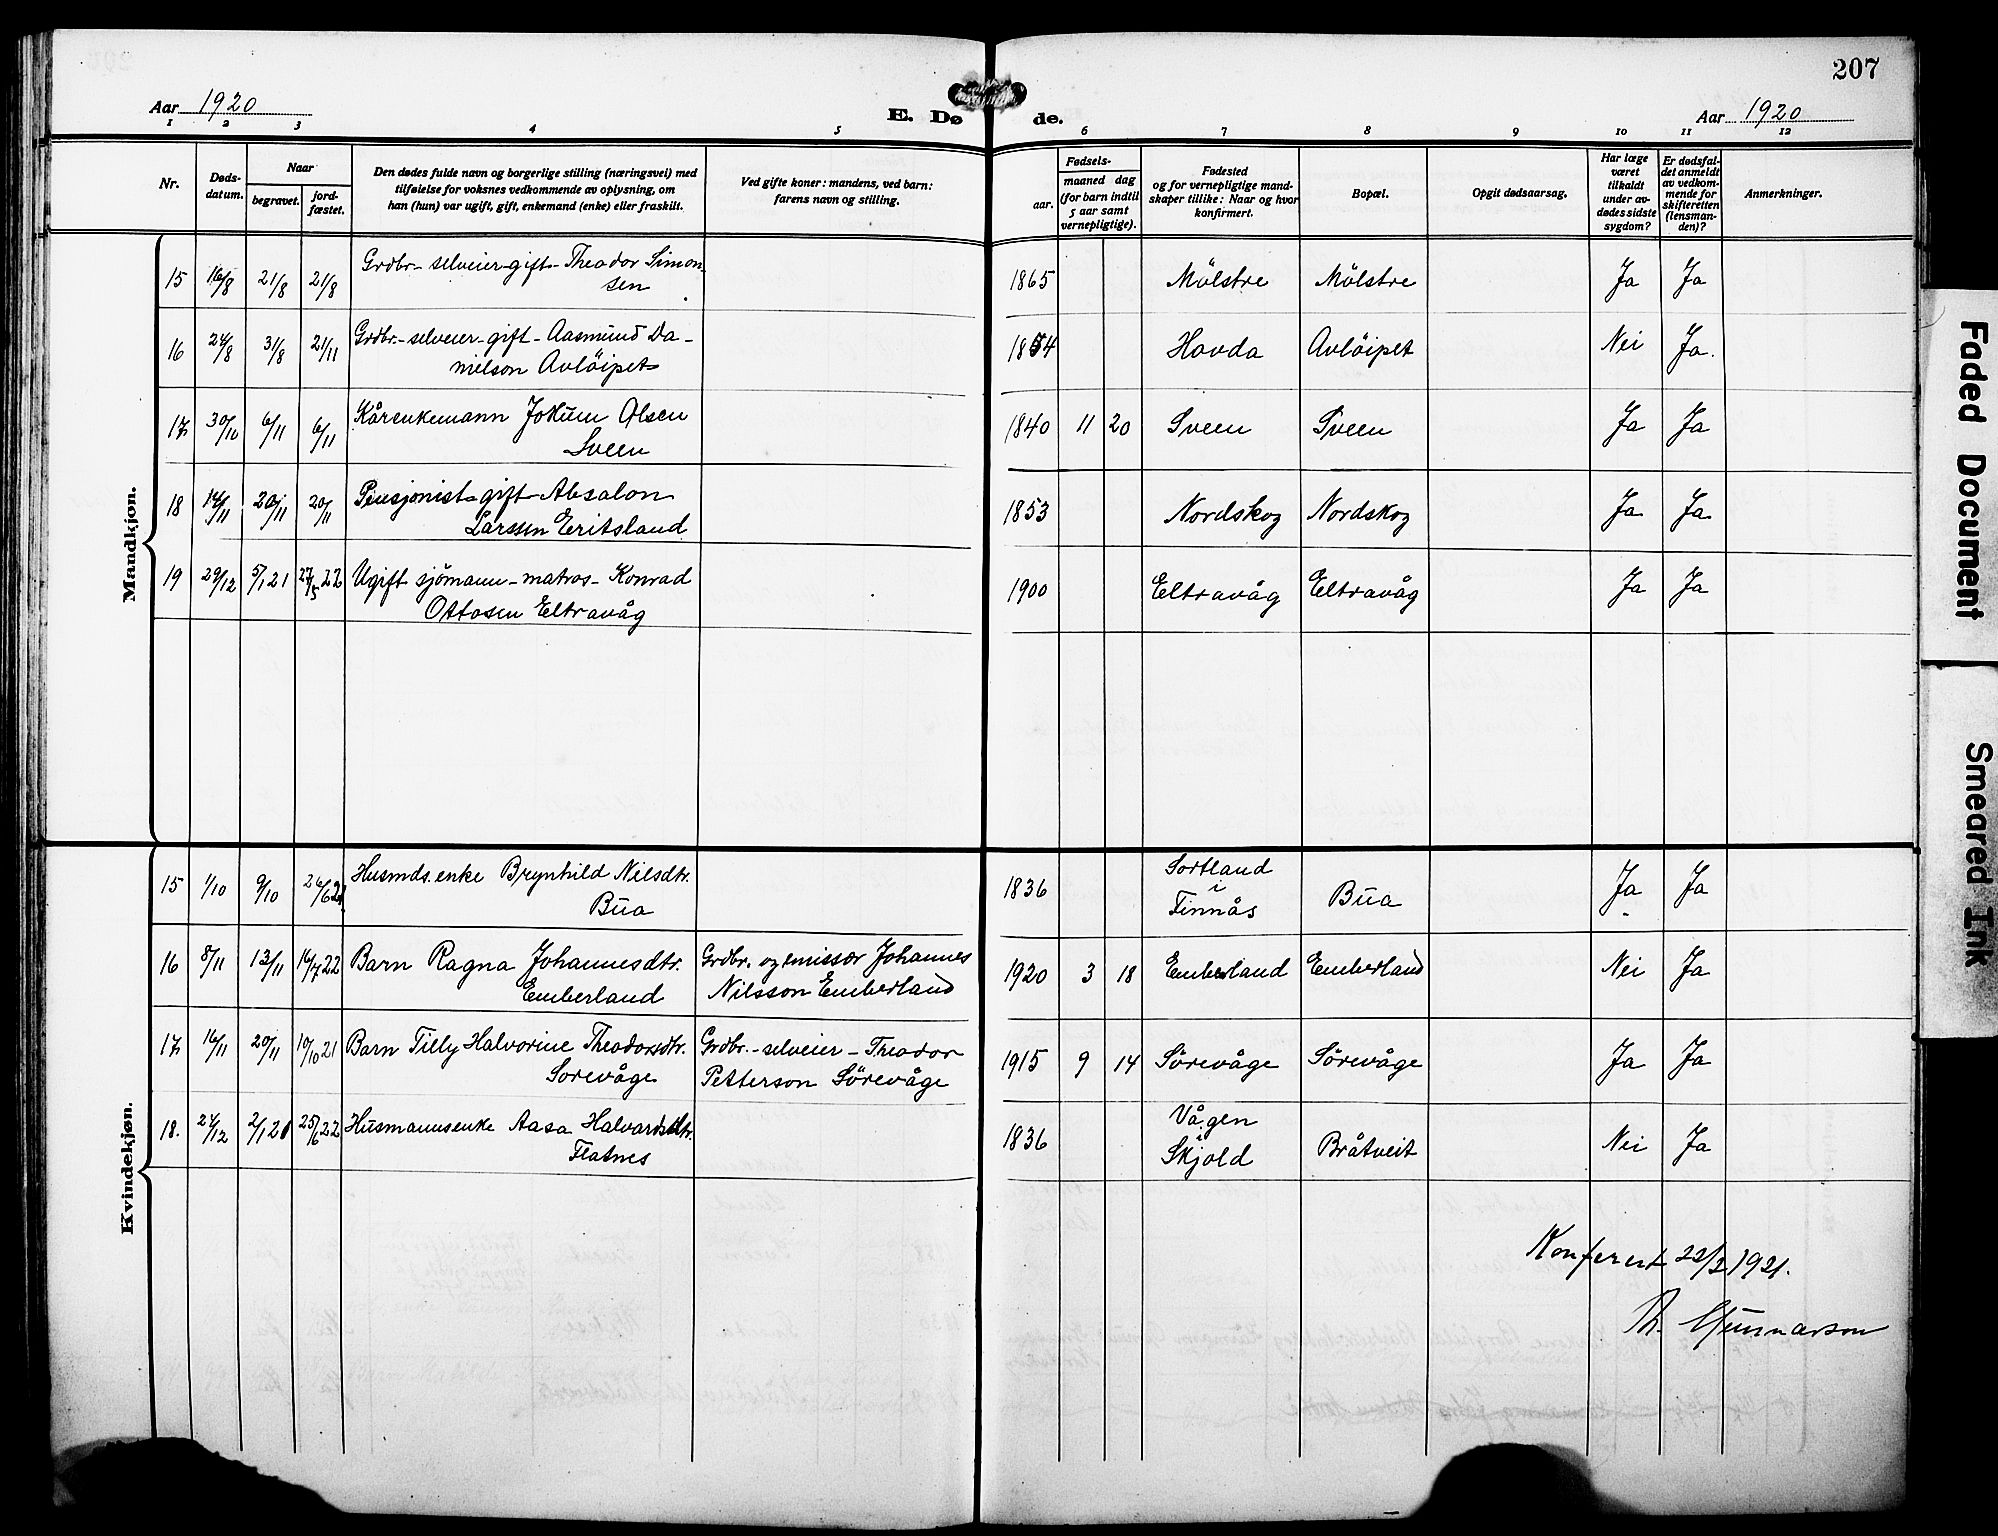 207
Aar 1920
E. Dø de.
Aar 1920
1 2 3 4 5 6 7 8 9 10 11 12
Nr.
Døds-
datum.
Naar
begravet.
jord-
fæstet.
Den dødes fulde navn og borgerlige stilling (næringsvei) med
tilføielse for voksnes vedkommende av oplysning, om
han (hun) var ugift, gift, enkemand (enke) eller fraskilt.
Ved gifte koner: mandens, ved barn:
farens navn og stilling.
Fødsels-
aar.
maaned dag
(for barn indtil
5 aar samt
vernepligtige).
Fødested
og for vernepligtige mand-
skaper tillike: Naar og hvor
konfirmert.
Bopæl.
Opgit dødsaarsag.
Har læge
været
tilkaldt
under av-
dødes sidste
sygdom?
Er dødsfal-
det anmeldt
av vedkom-
mende for
skifteretten
(lensman-
den)?
Anmerkninger.
Mandkjøn.
15 16/8 21/8 21/8 Grdbr.- selveier- gift- Theodor Simon-
sen
1865 Mölstre Mölstre Ja Ja
16 24/8 31/8 21/11 Grdbr.- selveier- gift- Aasmund Da-
nielson Avlöipet
1854 Hovda Avlöipet Nei Ja.
17 30/10 6/11 6/11 Kårenkemann Jokum Olsen
Sveen
1840 11 20 Sveen Sveen Ja Ja
18 14/11 20/11 20/11 Pensjonist- gift- Absalon
Larssen Eritsland
1853 Nordskog Nordskog Ja Ja
19 29/12 5/1 21 27/5 22 Ugift sjömann- matros- Konrad
Ottosen Eltravåg
1900 Eltravåg Eltravåg Ja Ja
Kvindekjøn.
15 1/10 9/10 26/6 21 Husmds. enke Brynhild Nilsdtr.
Bua
1836 Sortland
i
Finnås Bua Ja Ja
16 8/11 13/11 16/7 22 Barn Ragna Johannesdtr.
Emberland
Grdbr. og emissær Johannes
Nilsson Emberland
1920 3 18 Emberland Emberland Nei Ja
17 16/11 20/11 10/10 21 Barn Tilly Halvorine Theodorsdtr.
Sorevåge
Grdbr.- selveier- Theodor
Petterson Sörevåge
1915 9 14 Sörevåge Sörevåge Ja Ja
18. 24/12 2/1 21 25/6 22 Husmannsenke Aasa Halvardsdtr.
Flatnes
1836 Vågen
i
Skjold Bråtveit Nei Ja
Konferert 22/2 1921.
Th. Gunnarson
Faded Document
Smeared Ink